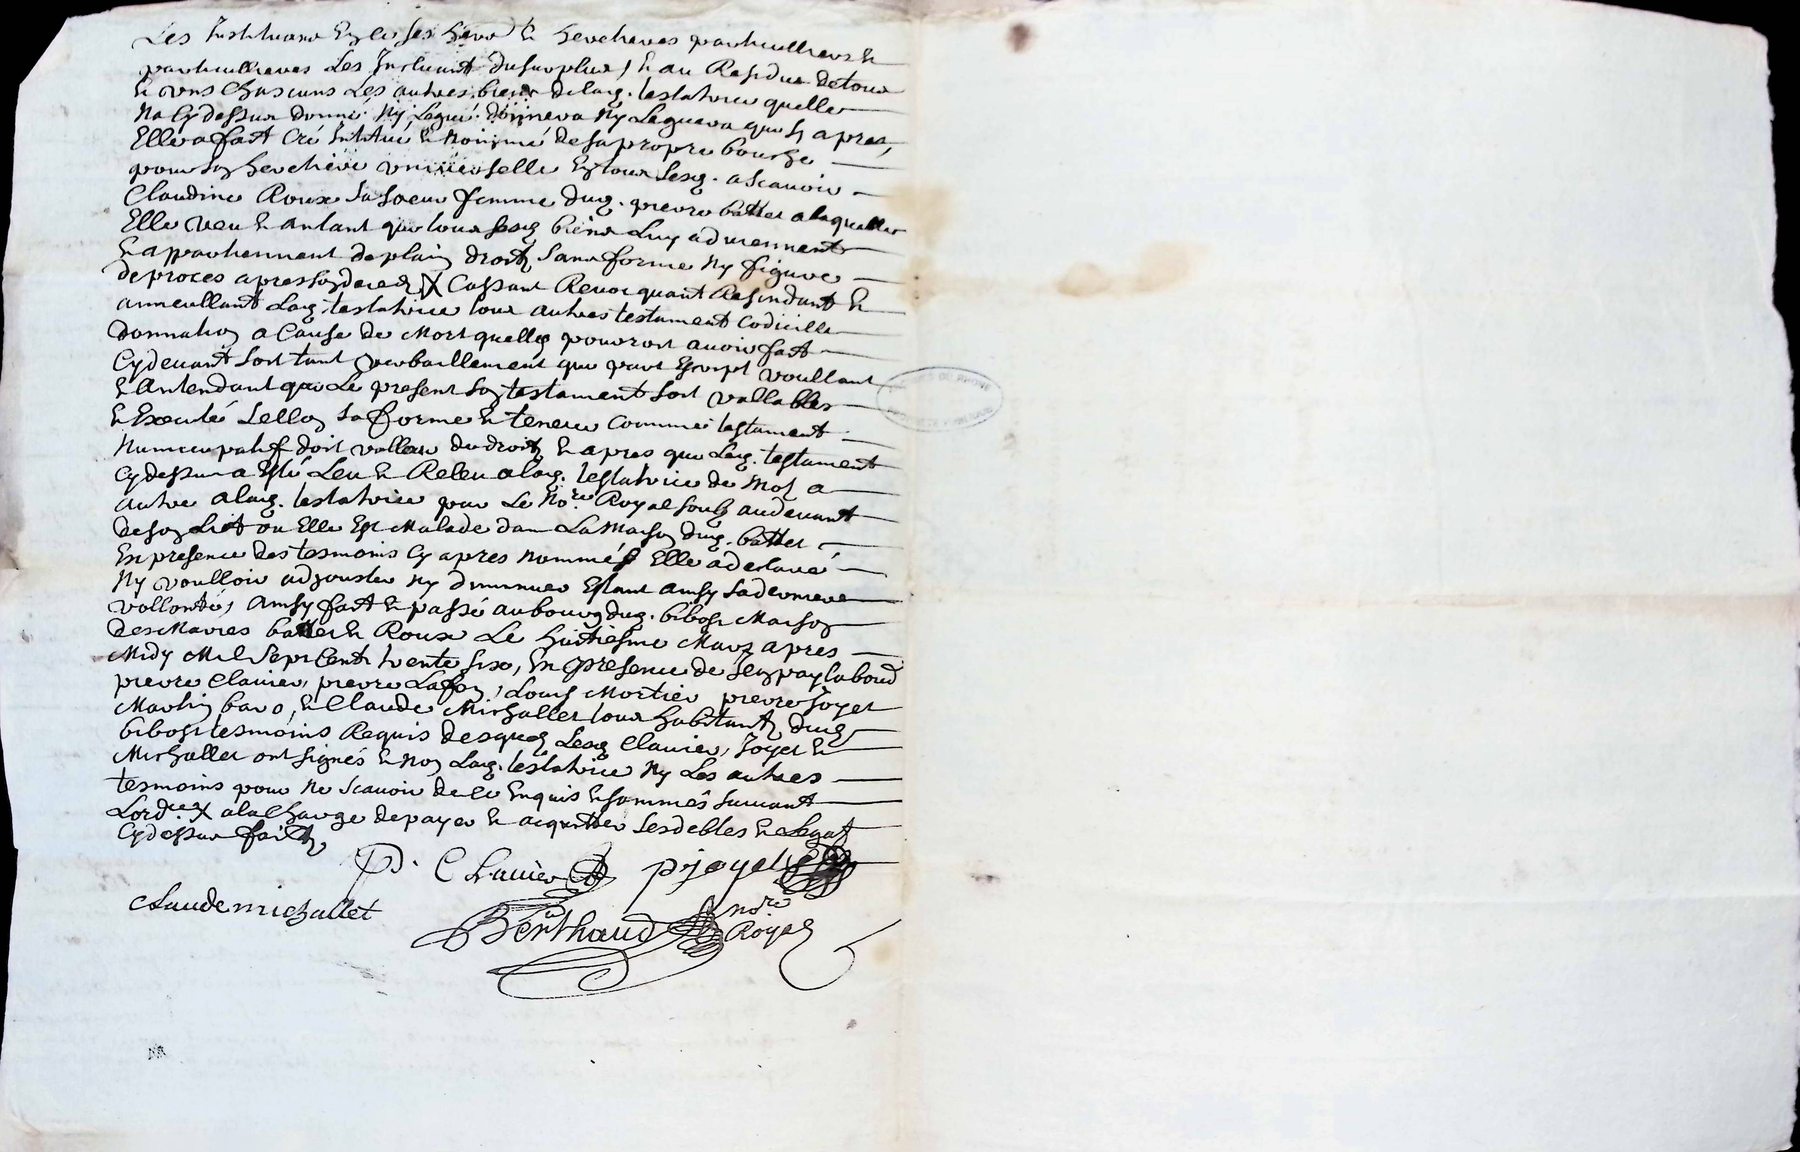 Les Instituant En ce ses heirs & heretieres particulliers &
particullieres Les Excluant du surplus, & au Residue de tous
& uns Chascuns Les autres biens de lad. testatrice quelle
Na Cy dessus donné Ny Legué donnera Ny Leguera que Cy apres,
Elle a fait Cré Institué & Nommé de sa propre bouche
pour son heretiere universelle En tous sesd. a scavoir
Claudine Roux sa soeur femme dud. pierre battet a laquelle
Elle veu & antant que tous sesd biens Luy adviennent
& appartiennent de plain droit sans forme Ny figure
de proces apres son deced X Cassant Revocquant Resindant &
anneullant Lad. testatrice tous autres testament Codicille
donnation a Cause de Mort quelle pourroit avoir fait
Cy devant soit tant verballement que part Escript voullant
& Antendant que Le present son testament soit vallable
& Executé sellon sa forme & teneur Comme testament
Nuncupatif doit valloir du droit & apres que Led. testament
Cy dessus a Esté Leu & Releu a lad. testatrice de Mot a
autre a lad. testatrice par Le Nore. Royal soub au devant
de son Lict ou Elle Est Malade dans La Maison dud. battet
En presence des tesmoins Cy apres Nommés Elle a declaré
Ny voulloir adjouster Ny diminuer Estant ainsy sa derniere
vollonté, ainsy fait & passé au bourg dud. bibost Maison
des Maries battet & Roux Le huitiesme Mars apres
Midy Mil sept Cents trente six, En presence de
pierre Clavier, pierre Lafon, Louis Mortier pierre Joyet
Martin baro, & Claude Michallet tous habitants dud.
bibost tesmoins Requis desquels Lesd Clavier, Joyet &
Michallet ont signés & Non Lad. testatrice Ny Les autres
tesmoins pour Ne scavoir de ce Enquis & sommés suivant
Lordce. X a la Charge de payer & acquitter ses debtes & Legat
Cy dessus faits
P. Clavier pijoyet
Claude michallet
Berthaud nore
Royal